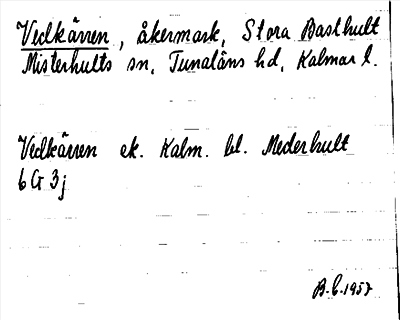 Vedkärren, åkermark, Stora Basthult
Misterhults sn, Tunaläns hd, Kalmar l.
Vedkärren ek. Kalm. bl. Mederhult
6 G 3j
B.C. 1957